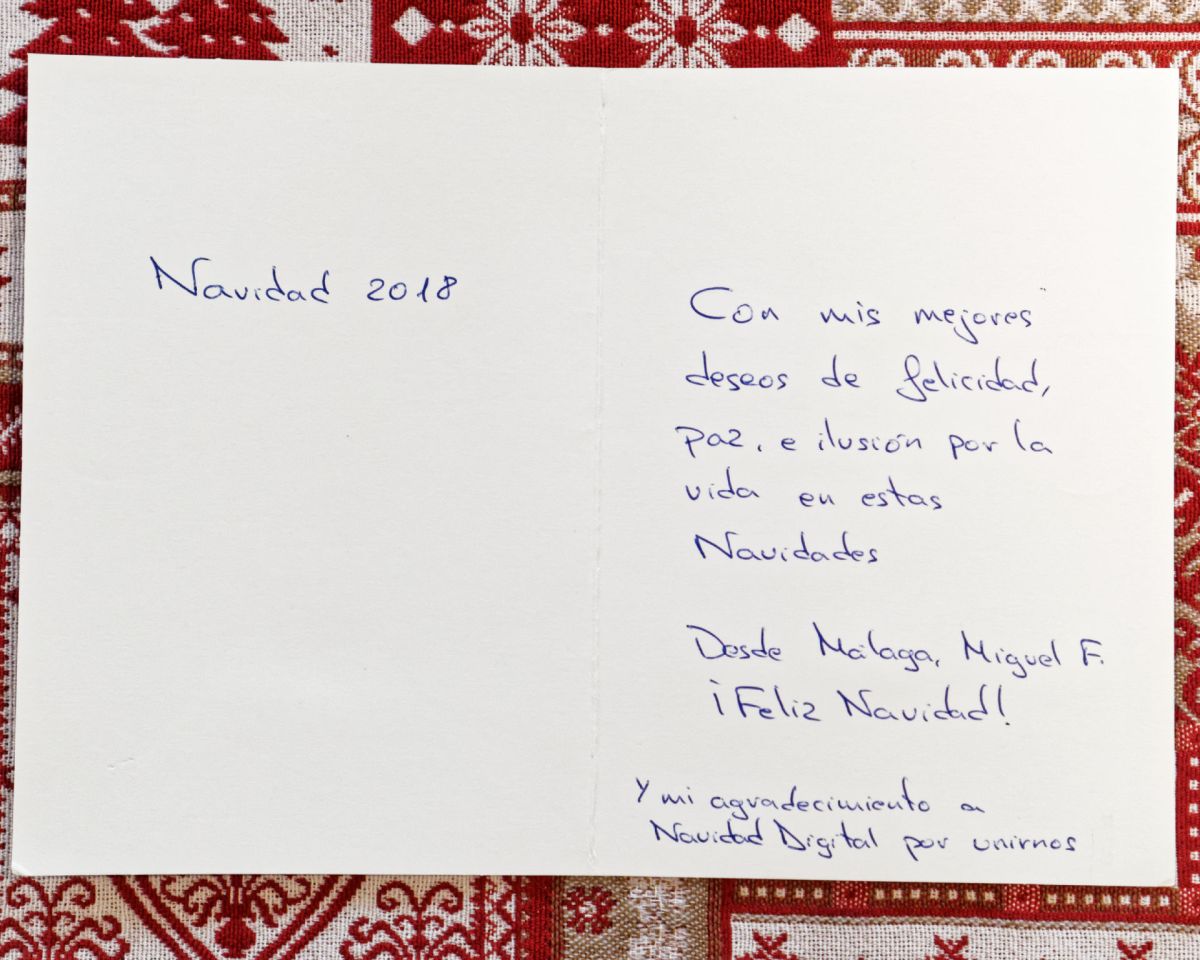 Navidad 2018
Con mis mejores
deseos de felicidad,
paz, e ilusión por la
vida en estas
Navidades
Desde Málaga, Miguel F.
¡Feliz Navidad!
Y mi agradecimiento a
Navidad Digital por unirnos